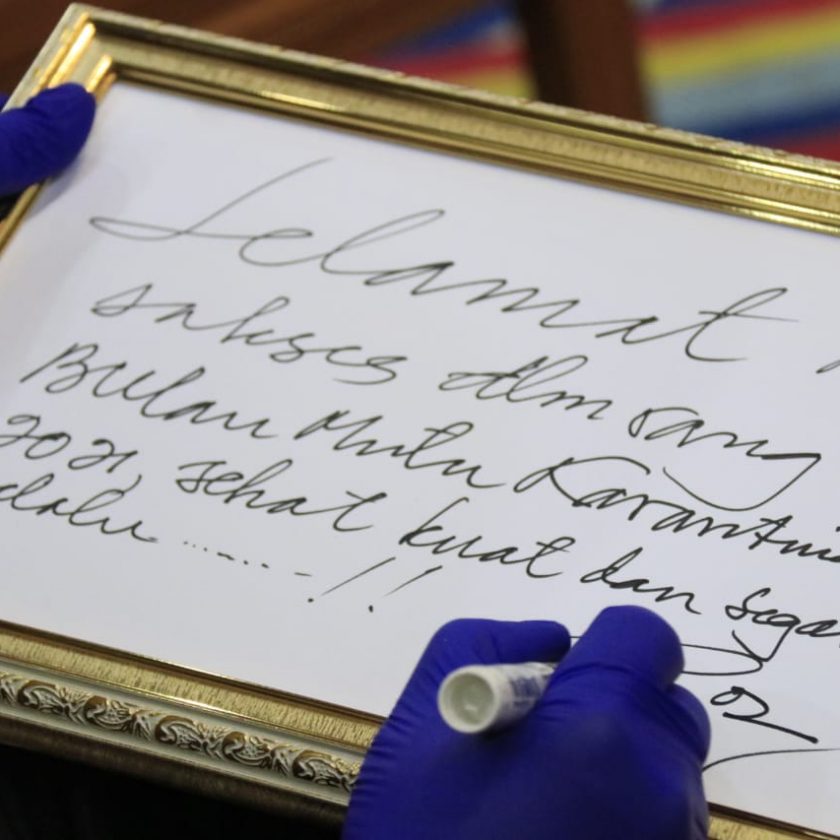 Selamat
sukses dlm rang
Bulan Mutu Karantin
2021, sehat kuat dan sega
selalu ........... !!